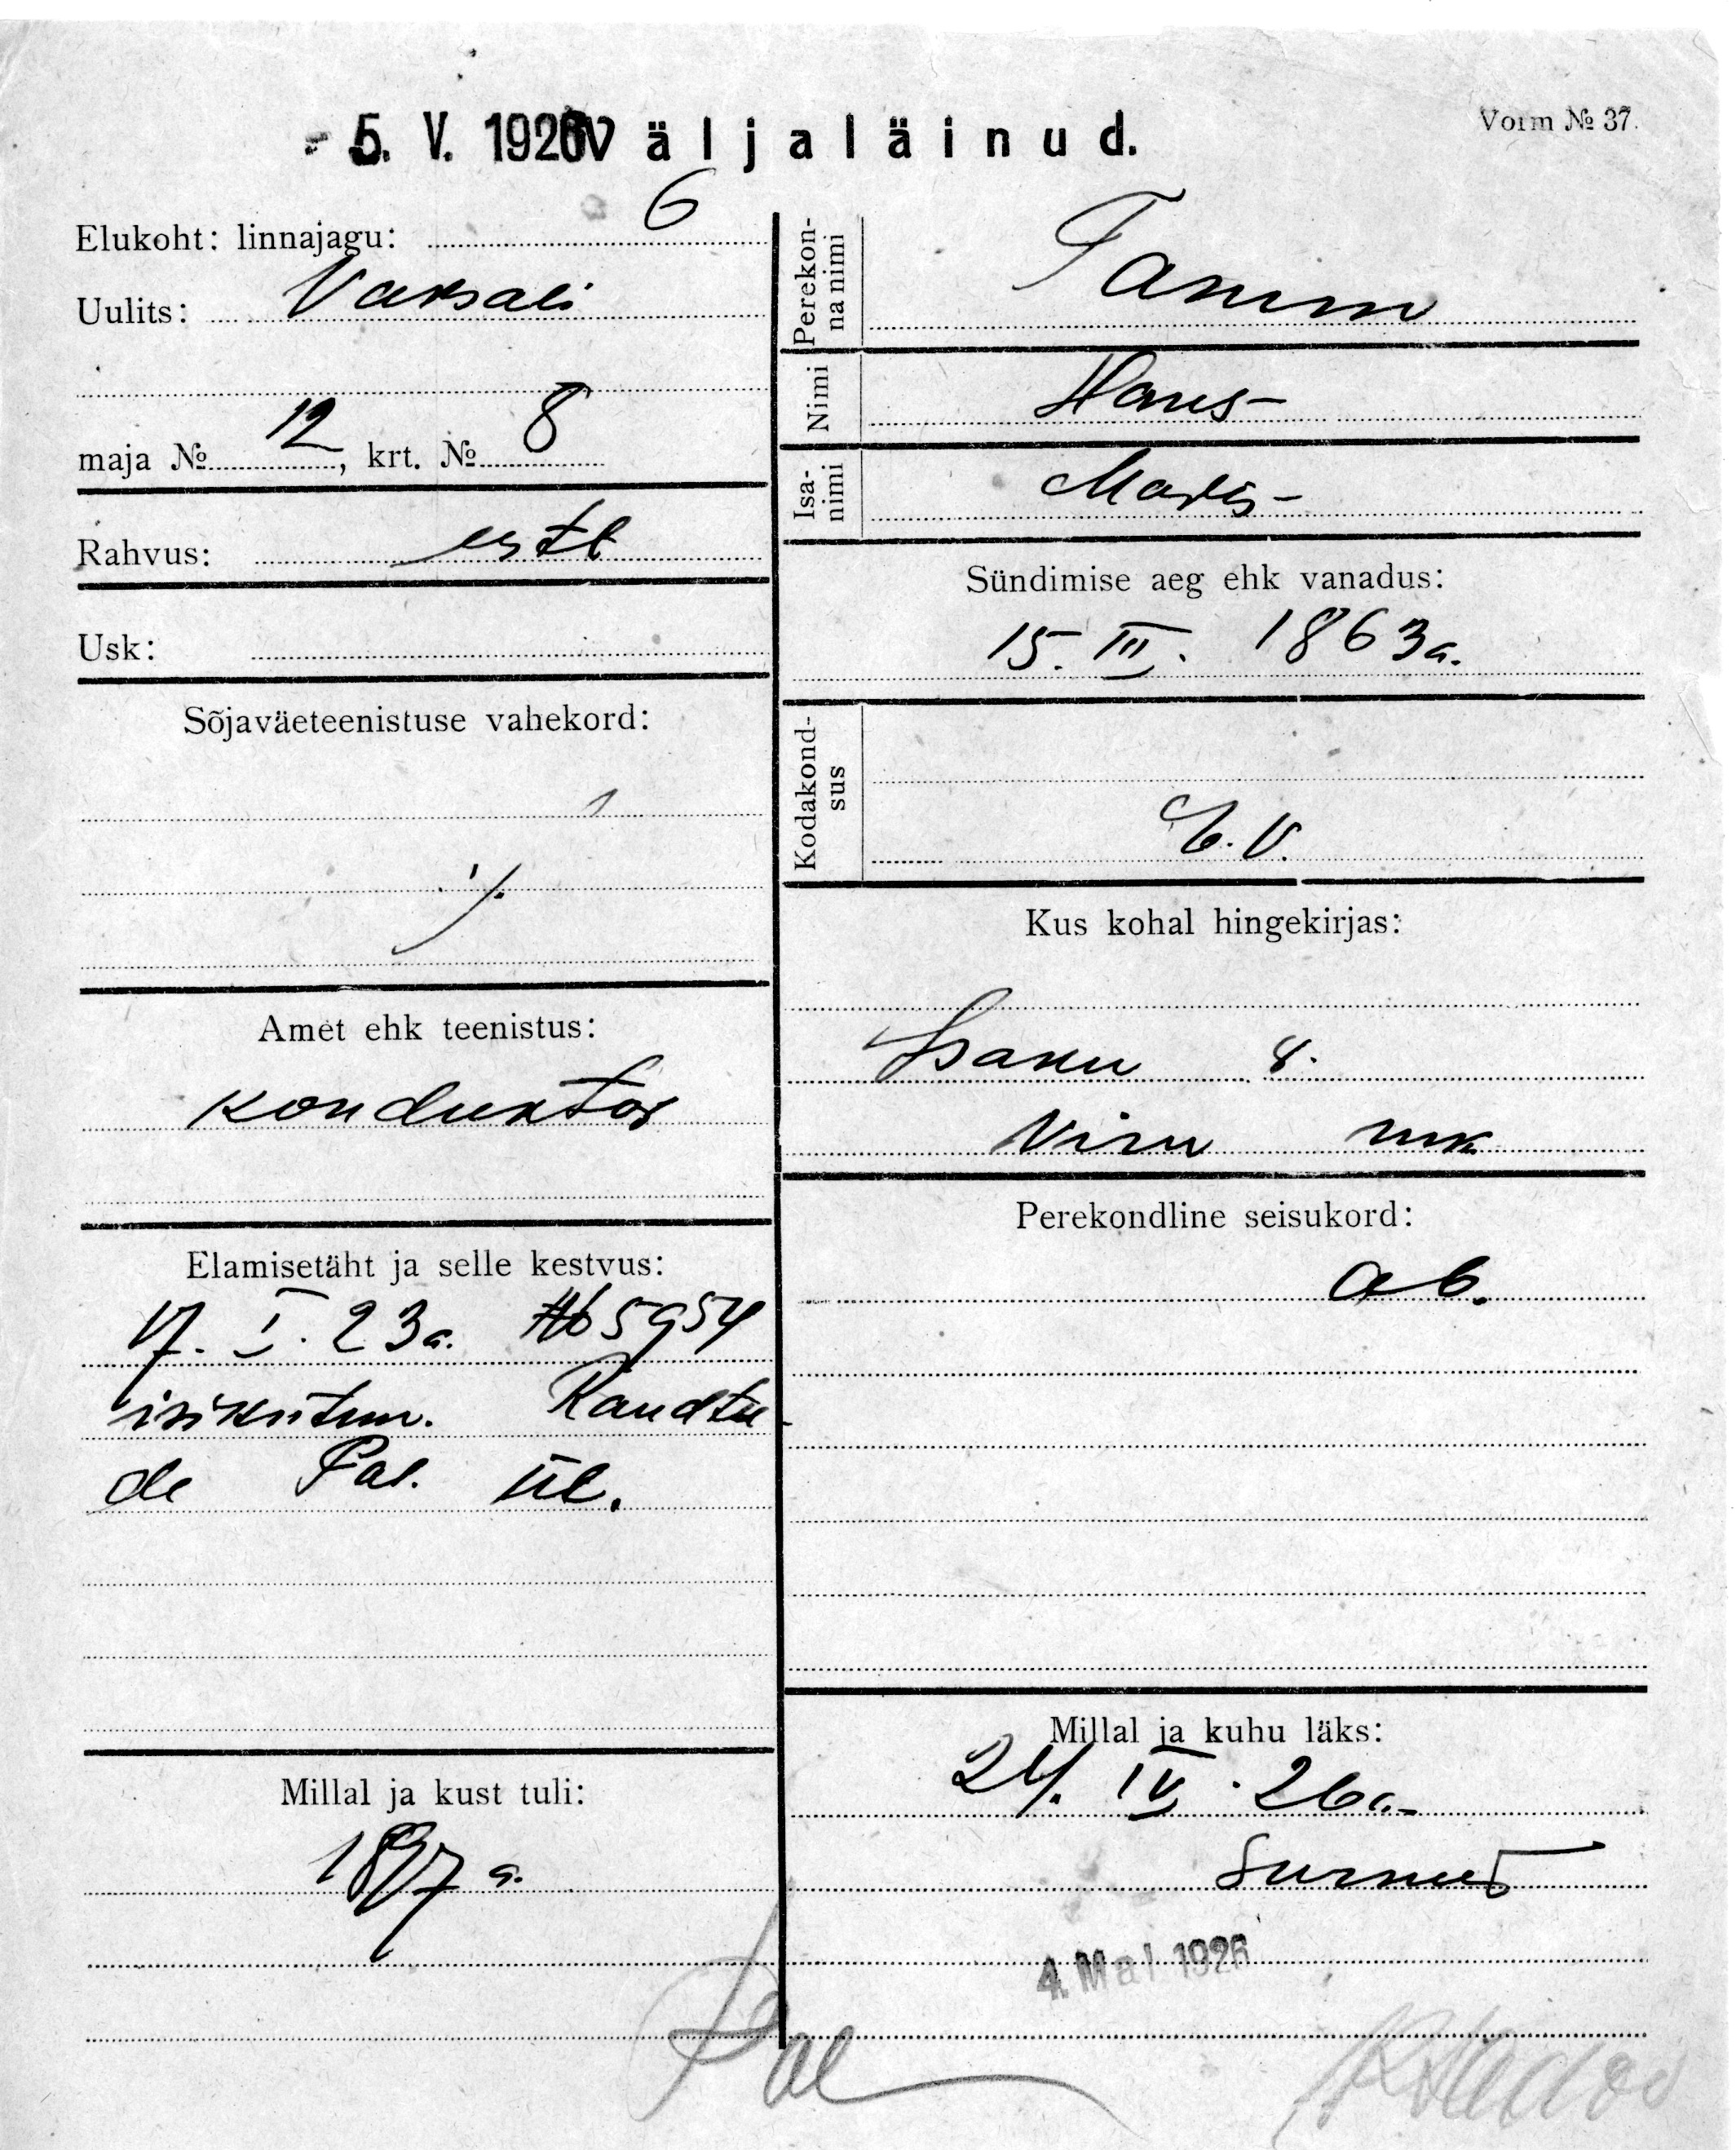 - 5. V. 1926
Väljaläinud.
Vorm № 37.
Elukoht: linnajagu: 6
Uulits: Vaksali
maja № 12, krt. № 8
Rahvus: estl
Usk:
Sõjaväeteenistuse vahekord:
·/.
Amet ehk teenistus:
konduktor
Elamisetäht ja selle kestvus:
17. I. 23a. № 5954
isikutun. Raudtee
de Pol. ül.
Millal ja kust tuli:
1897 a.
Perekonna nimi
Tamm
Nimi
Hans
Isanimi
Madis
Sündimise aeg ehk vanadus:
15. III. 1863a.
Kodakondsus
E.V.
Kus kohal hingekirjas:
Isaku v.
Viru mk
Perekondline seisukord:
ab.
Millal ja kuhu läks:
24. IV. 26a.
Surnud
4. Mai 1926